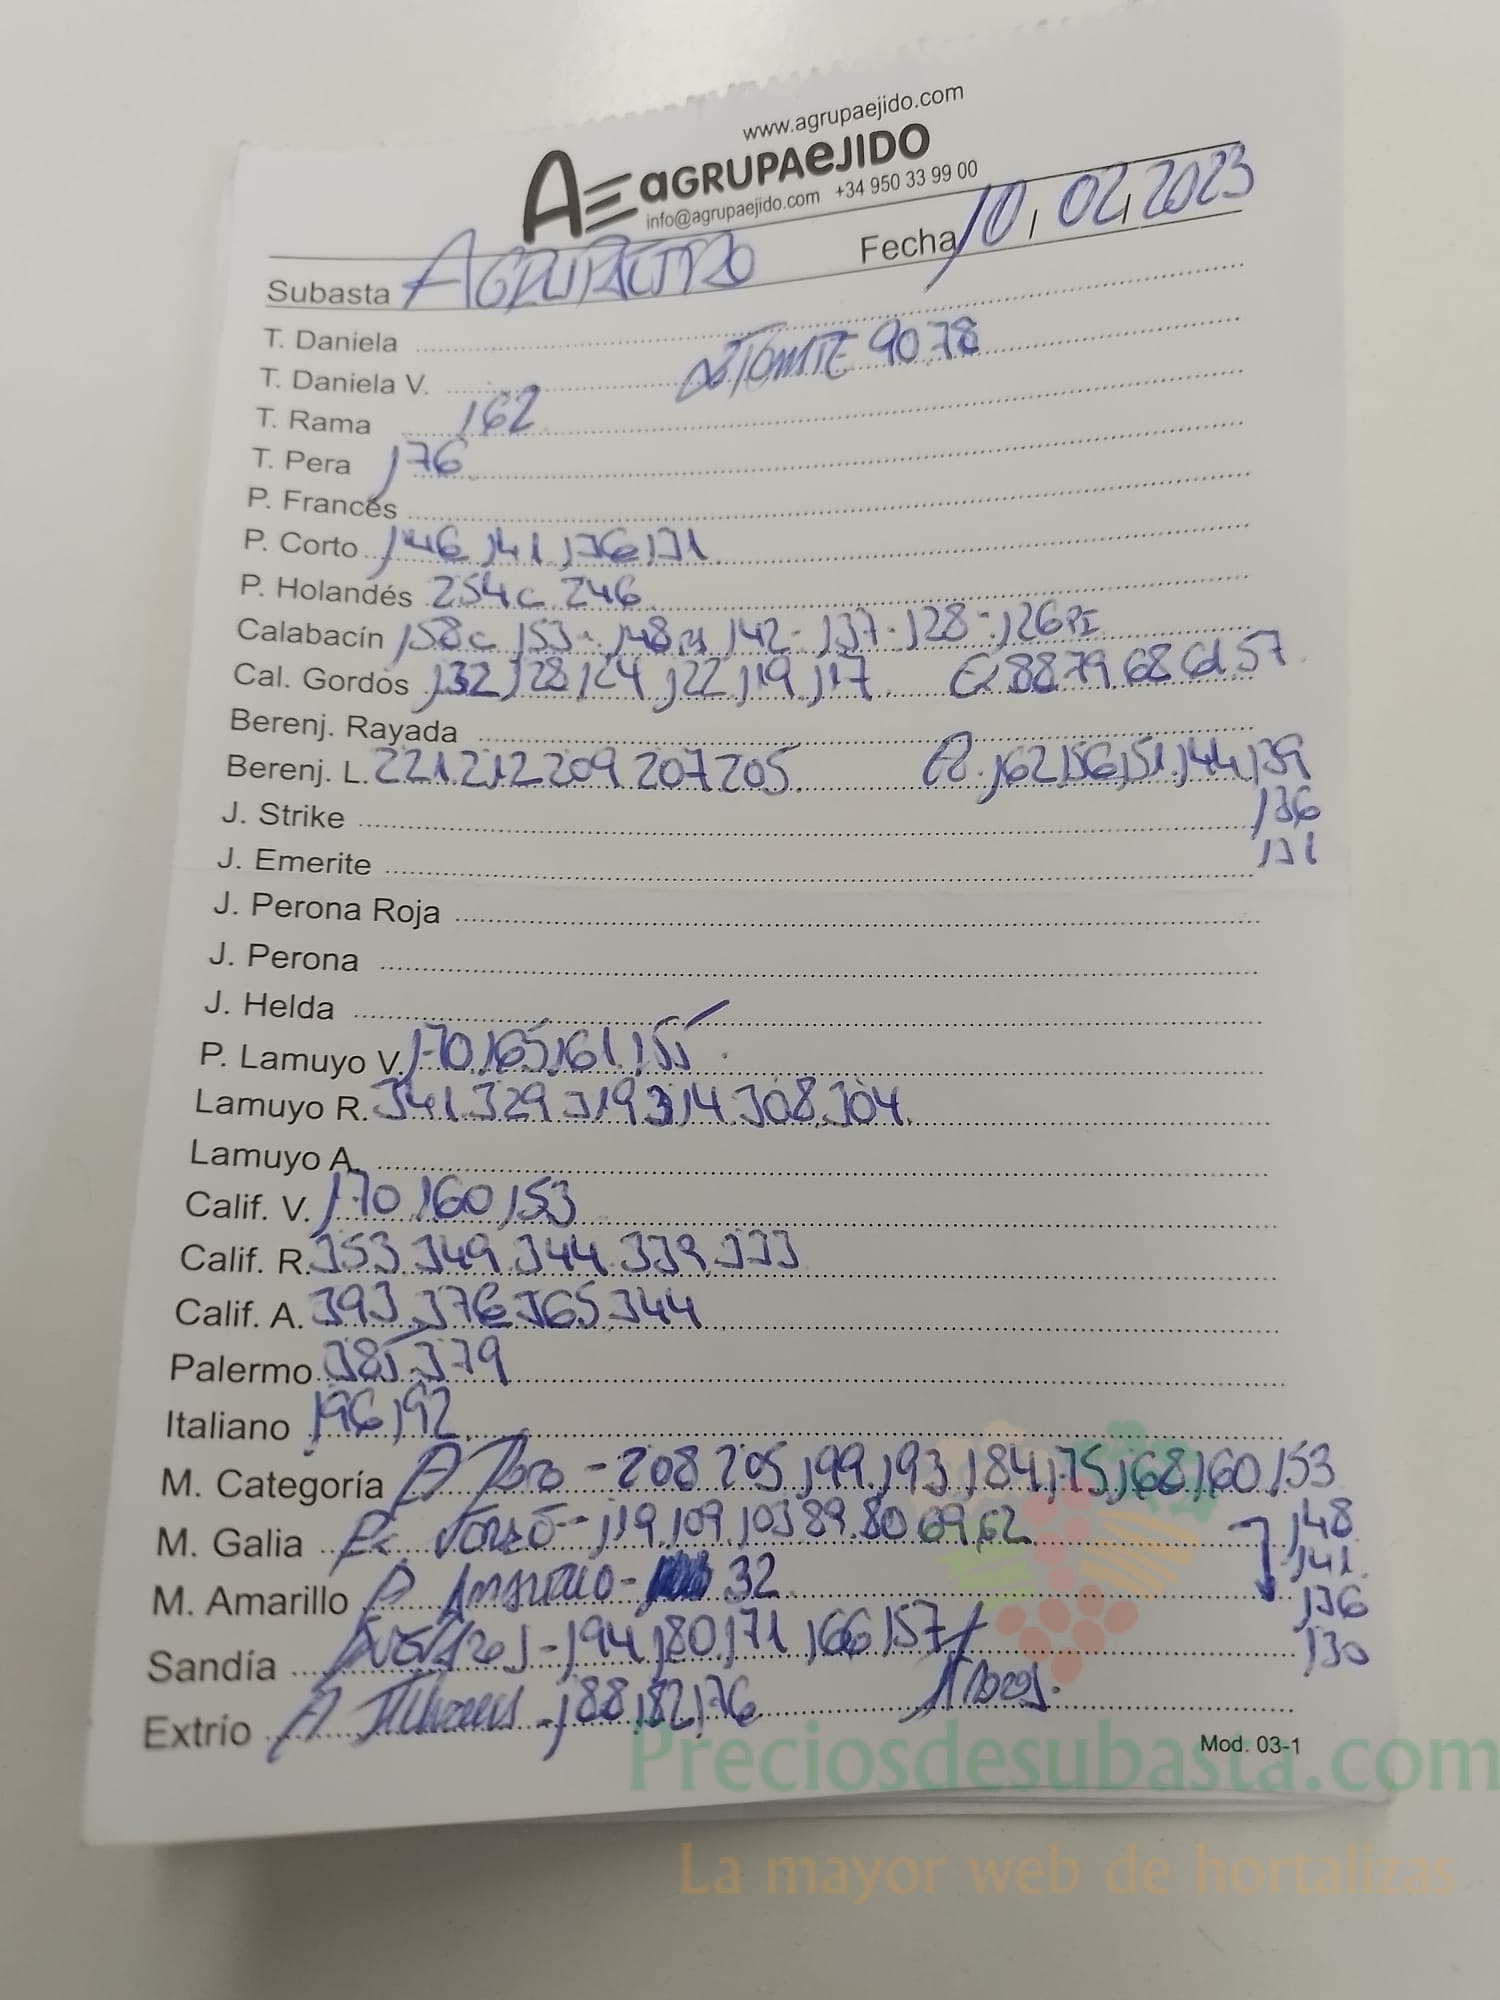 www.agrupaejido.com
AE aGRUPAeJIDO
info@agrupaejido.com +34 950 33 99 00
Subasta Fecha 10, 02, 2023
T. Daniela
T. Daniela V. 90 78
T. Rama 162
T. Pera 176
P. Francés
P. Corto 146 141 136 131
P. Holandés 254c 246
Calabacín 158c 153 - 148 142 - 137 - 128 - 126
Cal. Gordos 132 128 124 122 119 117 88 79 68 61 57
Berenj. Rayada
Berenj. L. 221 212 209 207 205 162 156 151 144 139
136
J. Strike
131
J. Emerite
J. Perona Roja
J. Perona
J. Helda
P. Lamuyo V. 170 165 161 155
Lamuyo R. 341 329 319 314 308 304
Lamuyo A.
Calif. V. 170 160 153
Calif. R. 353 349 344 339 333
Calif. A. 393 376 365 344
Palermo 385 379
Italiano 196 192
M. Categoría - 208 205 199 193 184 175 168 160 153
M. Galia - 119 109 103 89 80 69 62 148
141
M. Amarillo - 32 136
Sandía - 194 180 171 166 157 130
Extrío - 188 182 176
Mod. 03-1
Preciosdesubasta.com
La mayor web de hortalizas